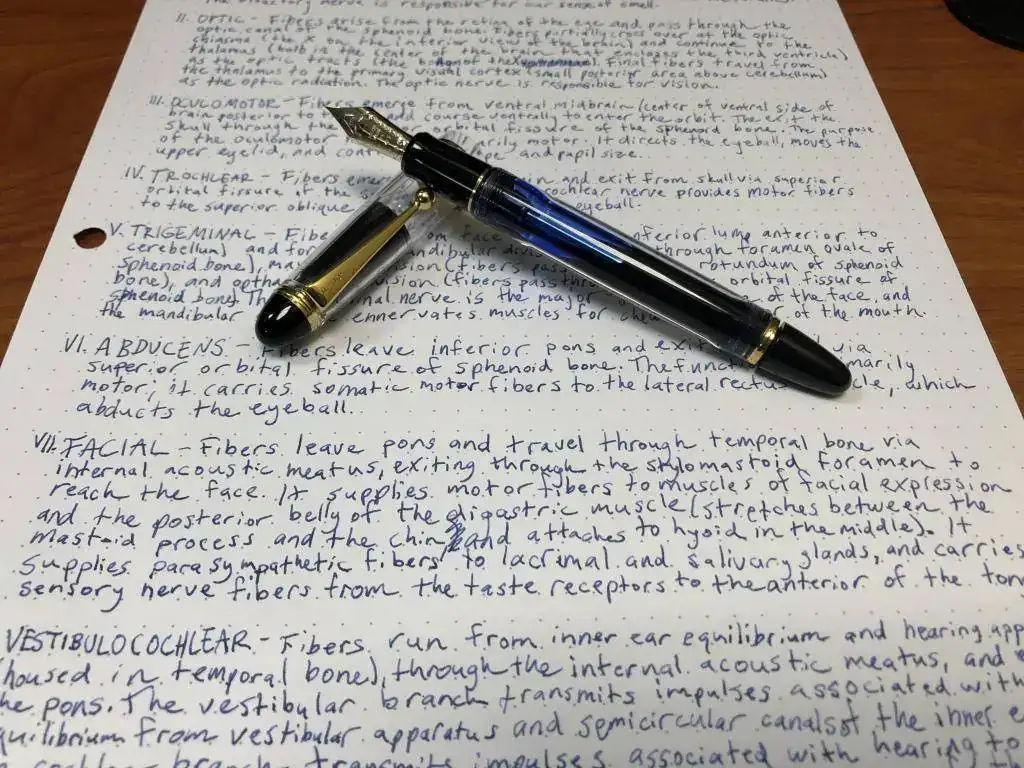 The olfactory nerve is responsible for our sense of smell.
II. OPTIC - Fibers arise from the retina of the eye and pass through the
optic canal of the sphenoid bone. Fibers partially cross over at the optic
chiasma (the X on the inferior view of the brain) and continue to the
thalamus (bulb in the center of the brain that encloses the third ventricle)
as the optic tracts (the of the ). Final fibers travel from
the thalamus to the primary visual cortex (small posterior area above cerebellum)
as the optic radiation. The optic nerve is responsible for vision.
III. OCULOMOTOR - Fibers emerge from ventral midbrain (center of ventral side of
brain posterior to and course ventrally to enter the orbit. The exit the
skull through the orbital fissure of the sphenoid bone. The purpose
of the oculomotor arily motor. It directs the eyeball, moves the
upper eyelid, and cont and pupil size.
IV. TROCHLEAR - Fibers eme in and exit from skull via superior
orbital fissure of the s rochlear nerve provides motor fibers
to the superior oblique eyeball.
V. TRIGEMINAL - Fibe om face inferior lump anterior to
cerebellum) and for andibular divis through foramen ovale of
sphenoid bone), ma ision (fibers pass rotundum of sphenoid
bone), and optha ision (fibers pass thro orbital fissure of
sphenoid bone). Th nal nerve is the major of the face, and
the mandibular ennervates muscles for che of the mouth.
VI. ABDUCENS - Fibers leave inferior pons and exit via
superior orbital fissure of sphenoid bone. The funct marily
motor; it carries somatic motor fibers to the lateral rectus cle, which
abducts the eyeball.
VII. FACIAL - Fibers leave pons and travel through temporal bone via
internal acoustic meatus, exiting through the stylomastoid foramen to
reach the face. It supplies motor fibers to muscles of facial expression
and the posterior belly of the digastric muscle (stretches between the
mastoid process and the chin and attaches to hyoid in the middle). It
supplies parasympathetic fibers to lacrimal and salivary glands, and carries
sensory nerve fibers from the taste receptors to the anterior of the ton
VESTIBULOCOCHLEAR - Fibers run from inner ear equilibrium and hearing app
housed in temporal bone), through the internal acoustic meatus, and e
he pons. The vestibular branch transmits impulses associated with
quilibrium from vestibular apparatus and semicircular canals of the inner e
cochlear branch transmits impulses associated with hearing to